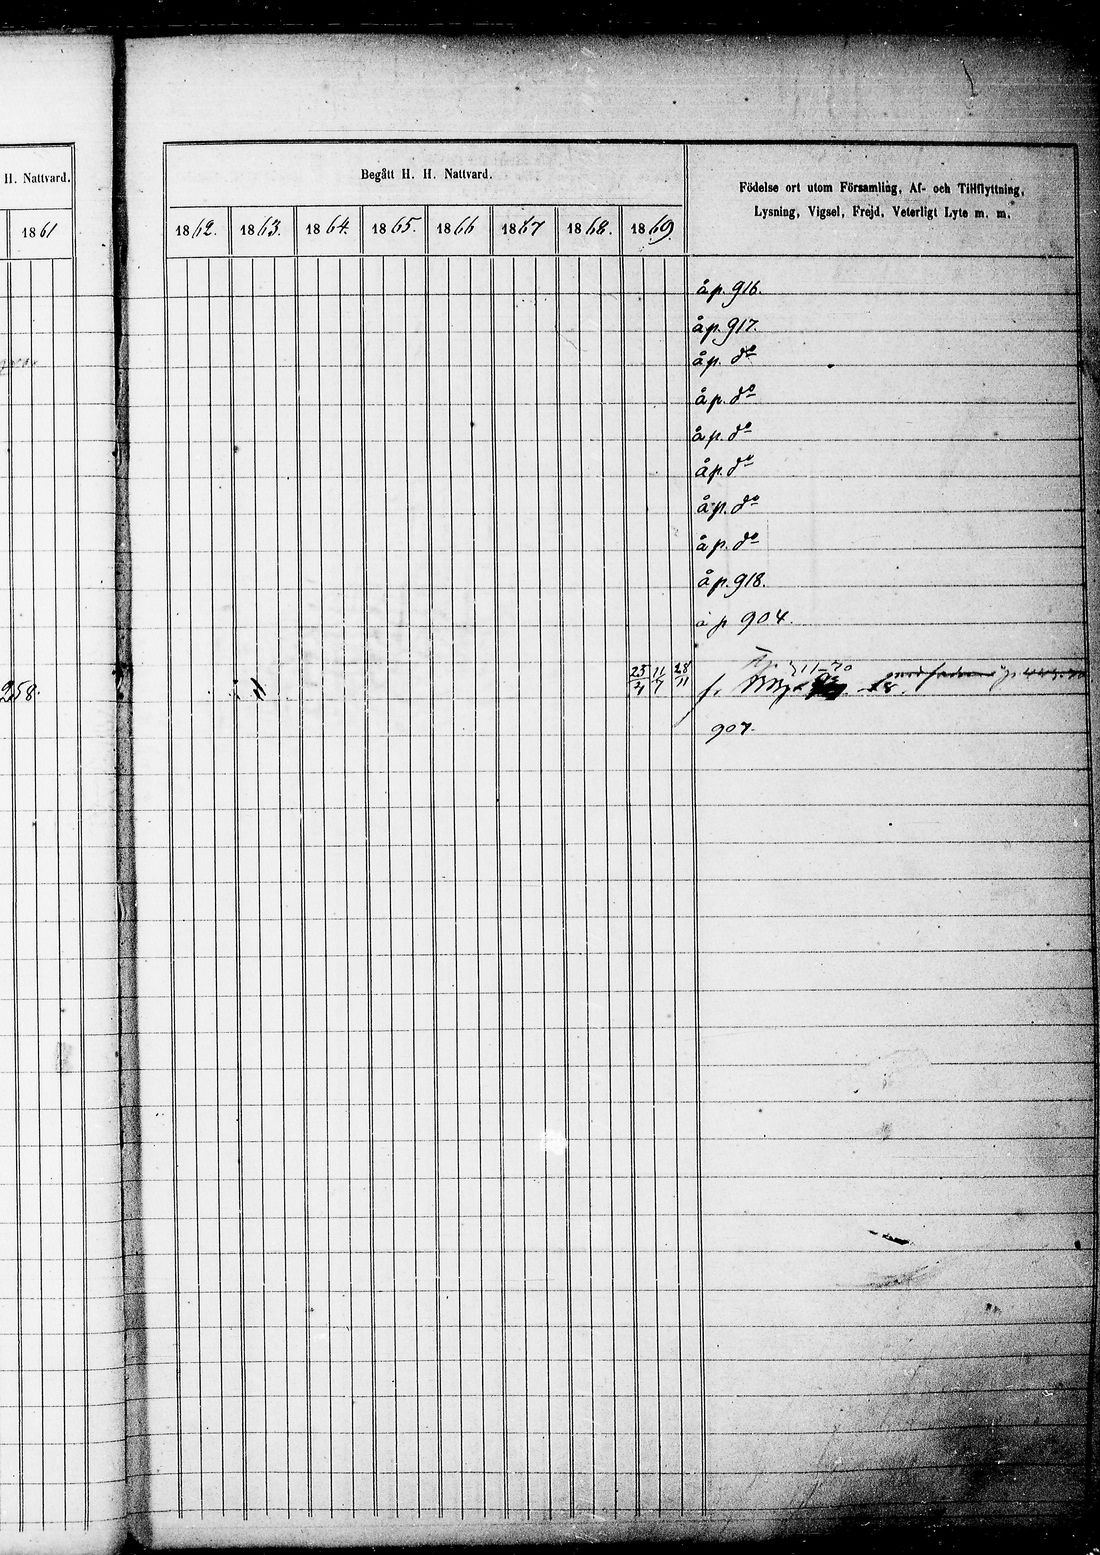 H. Nattvard.
1861
258.
Begått H. H. Nattvard.
Födelse ort utom Församling, Af- och Tillflyttning,
Lysning, Vigsel, Frejd, Veterligt Lyte m. m.
1862. 1863. 1864. 1865. 1866 1867 1868. 1869.
å p. 916.
å p. 917.
å p. do
å p. do
å p. do
å p. do
å p. do
å p. do
å p. 918.
å p 904.
11-70
25/4 11/7 28/11 f.
907.